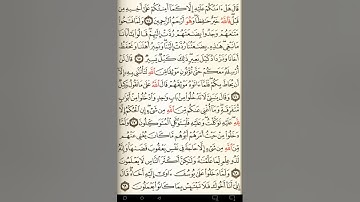 قَالَ هَلْ ءَامَنُكُمْ عَلَيْهِ إِلَّا كَمَآ أَمِنتُكُمْ عَلَىٰٓ أَخِيهِ مِن
قَبْلُ فَٱللَّهُ خَيْرٌ حَٰفِظًا وَهُوَ أَرْحَمُ ٱلرَّٰحِمِينَ ٦٤ وَلَمَّا فَتَحُوا۟
مَتَٰعَهُمْ وَجَدُوا۟ بِضَٰعَتَهُمْ رُدَّتْ إِلَيْهِمْ قَالُوا۟ يَٰٓأَبَانَا
مَا نَبْغِى هَٰذِهِۦ بِضَٰعَتُنَا رُدَّتْ إِلَيْنَا وَنَمِيرُ أَهْلَنَا وَنَحْفَظُ
أَخَانَا وَنَزْدَادُ كَيْلَ بَعِيرٍ ذَٰلِكَ كَيْلٌ يَسِيرٌ ٦٥ قَالَ لَنْ
أُرْسِلَهُۥ مَعَكُمْ حَتَّىٰ تُؤْتُونِ مَوْثِقًا مِّنَ ٱللَّهِ لَتَأْتُنَّنِى بِهِۦٓ إِلَّآ
أَن يُحَاطَ بِكُمْ فَلَمَّآ ءَاتَوْهُ مَوْثِقَهُمْ قَالَ ٱللَّهُ عَلَىٰ مَا نَقُولُ وَكِيلٌ
٦٦ وَقَالَ يَٰبَنِىَّ لَا تَدْخُلُوا۟ مِنۢ بَابٍ وَٰحِدٍ وَٱدْخُلُوا۟ مِنْ أَبْوَٰبٍ
مُّتَفَرِّقَةٍ وَمَآ أُغْنِى عَنكُم مِّنَ ٱللَّهِ مِن شَىْءٍ إِنِ ٱلْحُكْمُ إِلَّا
لِلَّهِ عَلَيْهِ تَوَكَّلْتُ وَعَلَيْهِ فَلْيَتَوَكَّلِ ٱلْمُتَوَكِّلُونَ ٦٧ وَلَمَّا
دَخَلُوا۟ مِنْ حَيْثُ أَمَرَهُمْ أَبُوهُم مَّا كَانَ يُغْنِى عَنْهُم
مِّنَ ٱللَّهِ مِن شَىْءٍ إِلَّا حَاجَةً فِى نَفْسِ يَعْقُوبَ قَضَىٰهَا وَإِنَّهُۥ
لَذُو عِلْمٍ لِّمَا عَلَّمْنَٰهُ وَلَٰكِنَّ أَكْثَرَ ٱلنَّاسِ لَا يَعْلَمُونَ
٦٨ وَلَمَّا دَخَلُوا۟ عَلَىٰ يُوسُفَ ءَاوَىٰٓ إِلَيْهِ أَخَاهُ قَالَ
إِنِّىٓ أَنَا۠ أَخُوكَ فَلَا تَبْتَئِسْ بِمَا كَانُوا۟ يَعْمَلُونَ ٦٩